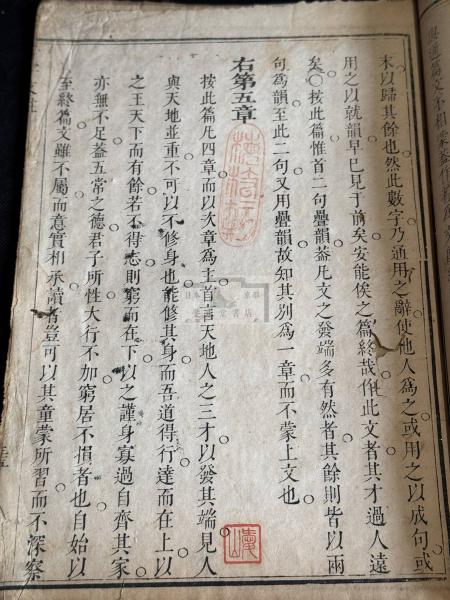 末以歸其餘也然此數字乃通用之辭使他人為之或用之以成句或
用之以就韻早已見于前矣安能俟之篇終哉作此文者其才過人遠
矣○按此篇惟首二句疊韻葢凡文之發端多有然者其餘則皆以兩
句為韻至此二句又用疊韻故知其別為一章而不蒙上文也
右第五章
按此篇凡四章而以次章為主首言天地人之三才以發其端見人
與天地並重不可以不修身也能修其身而吾道得行達而在上以
之王天下而有餘若不得志則窮而在下以之謹身寡過自齊其家
亦無不足葢五常之德君子所性大行不加窮居不損者也自始以
至終篇文雖不屬而意實相承讀者豈可以其童蒙所習而不深察